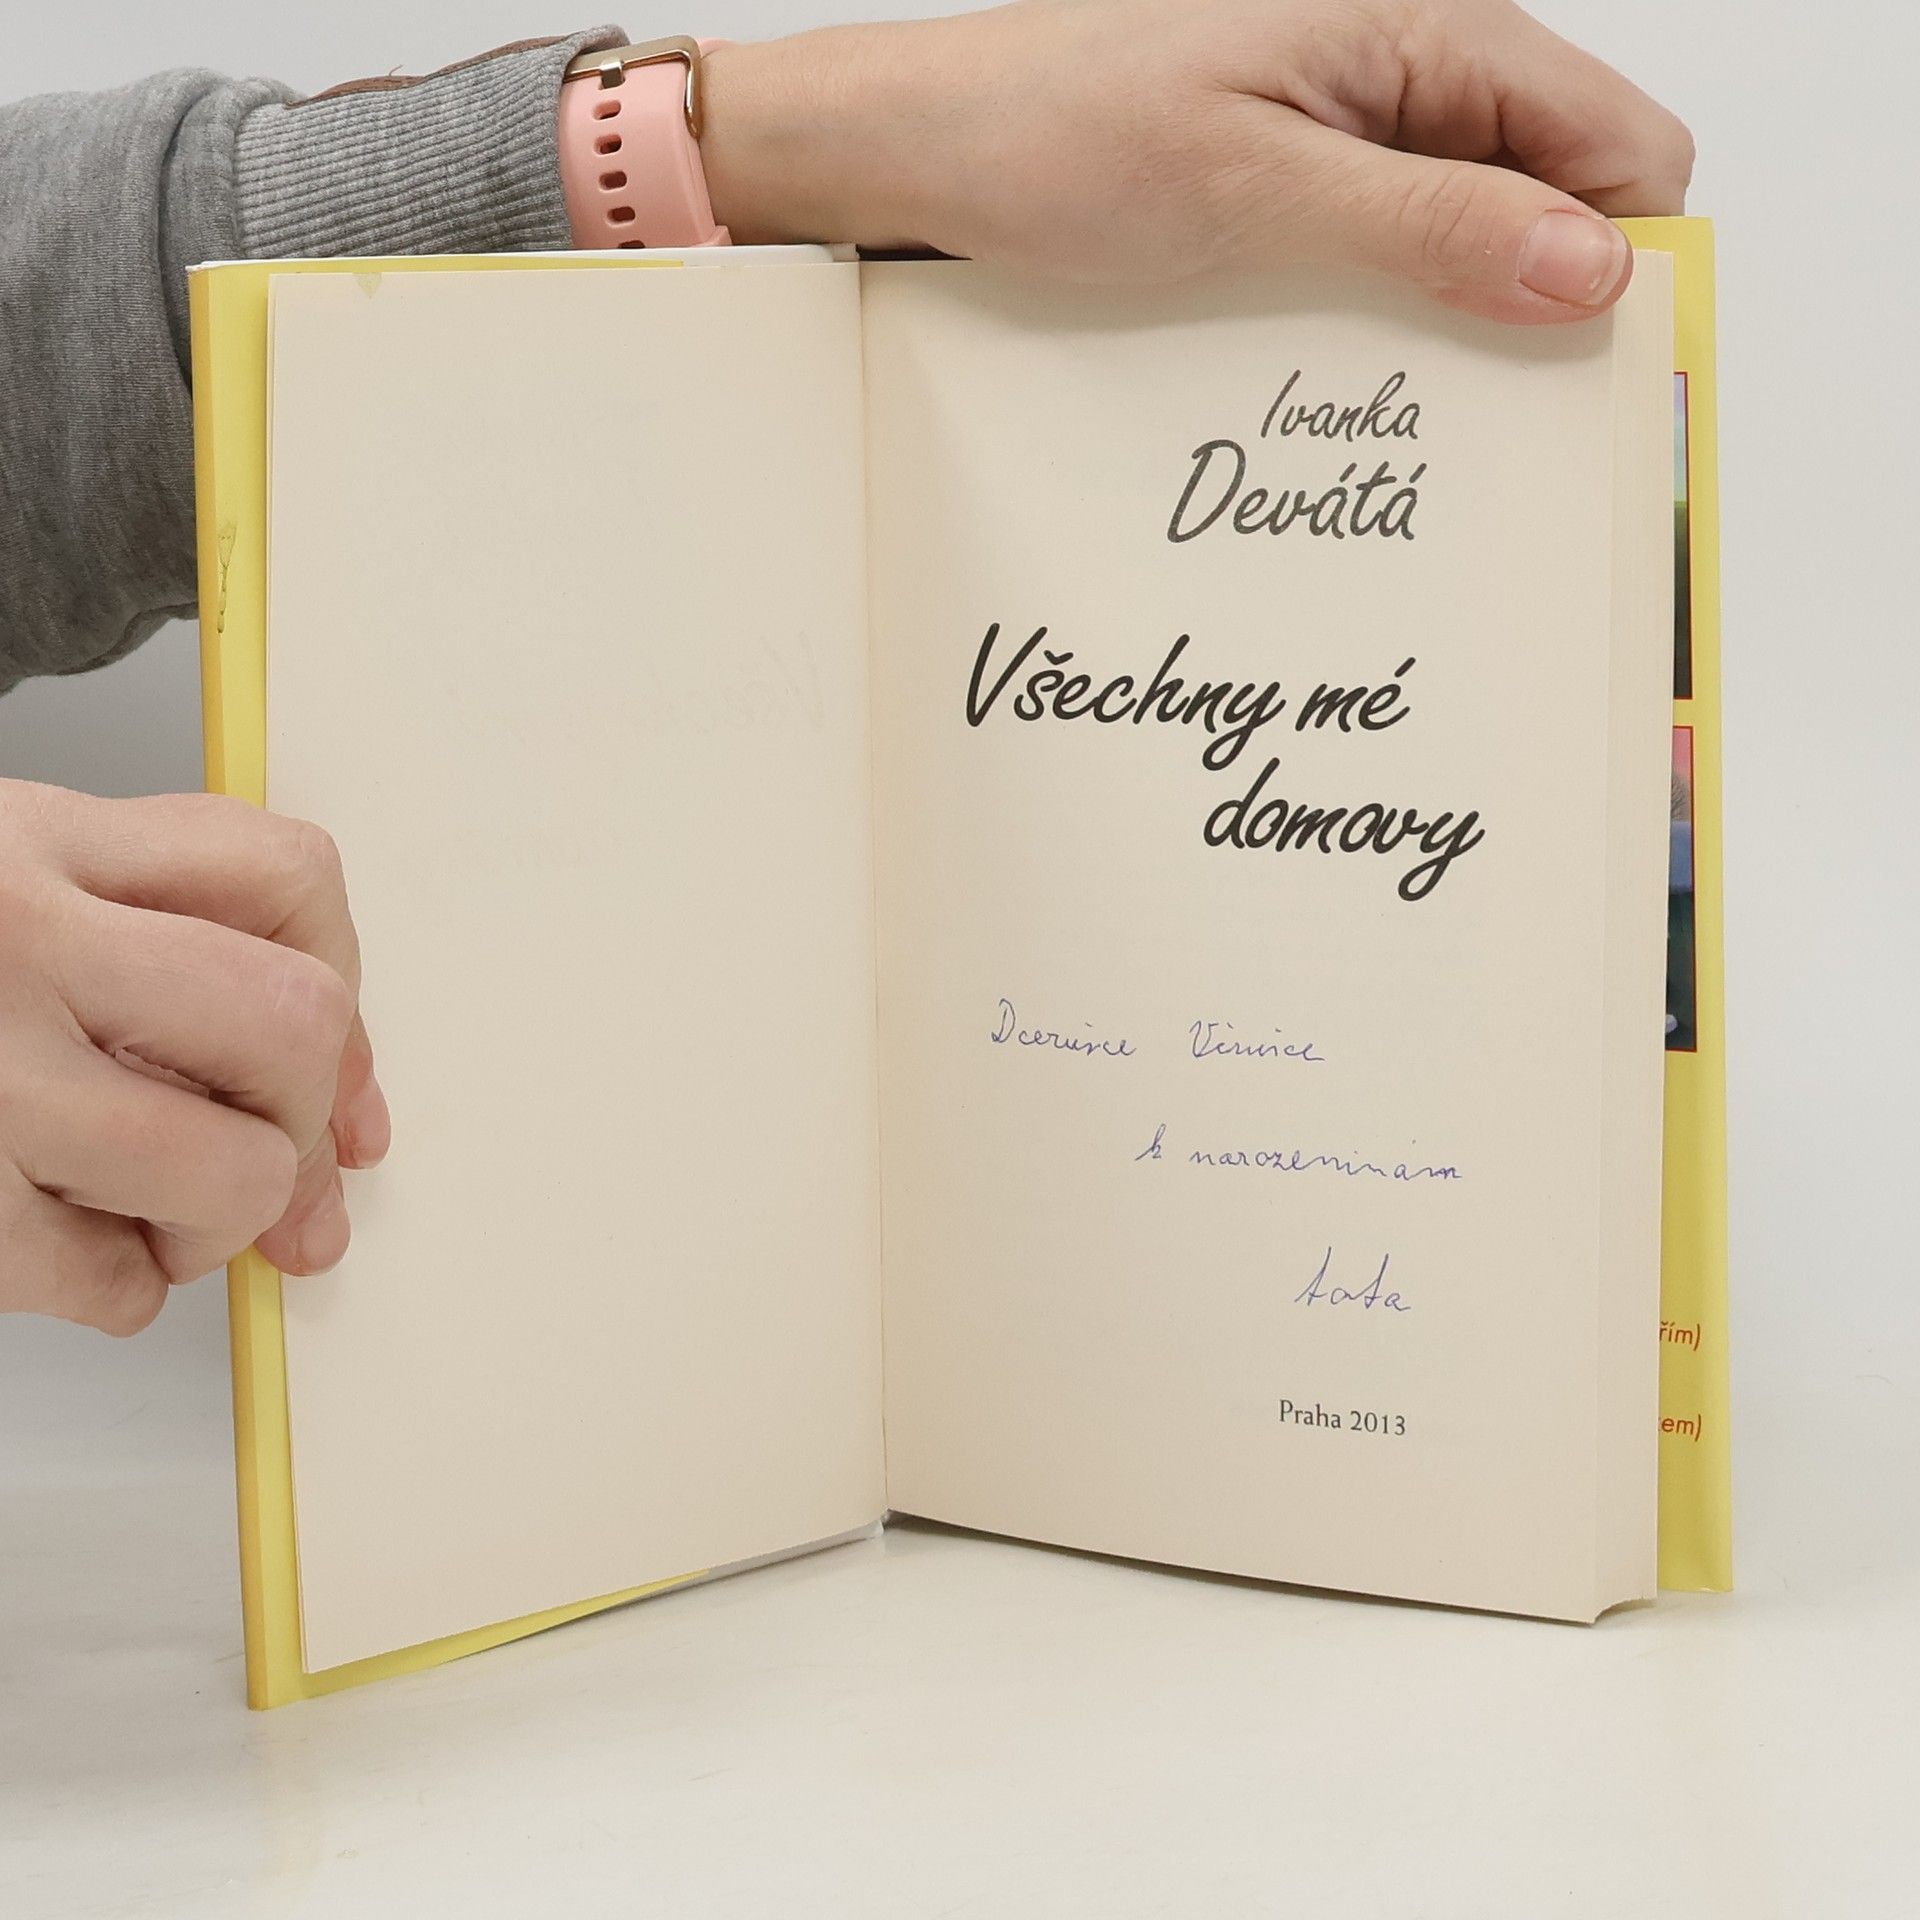 Ivanka
Devátá
Všechny mé
domovy
Dcerušce
k narozeninám
tata
Praha 2013
řím)
em)